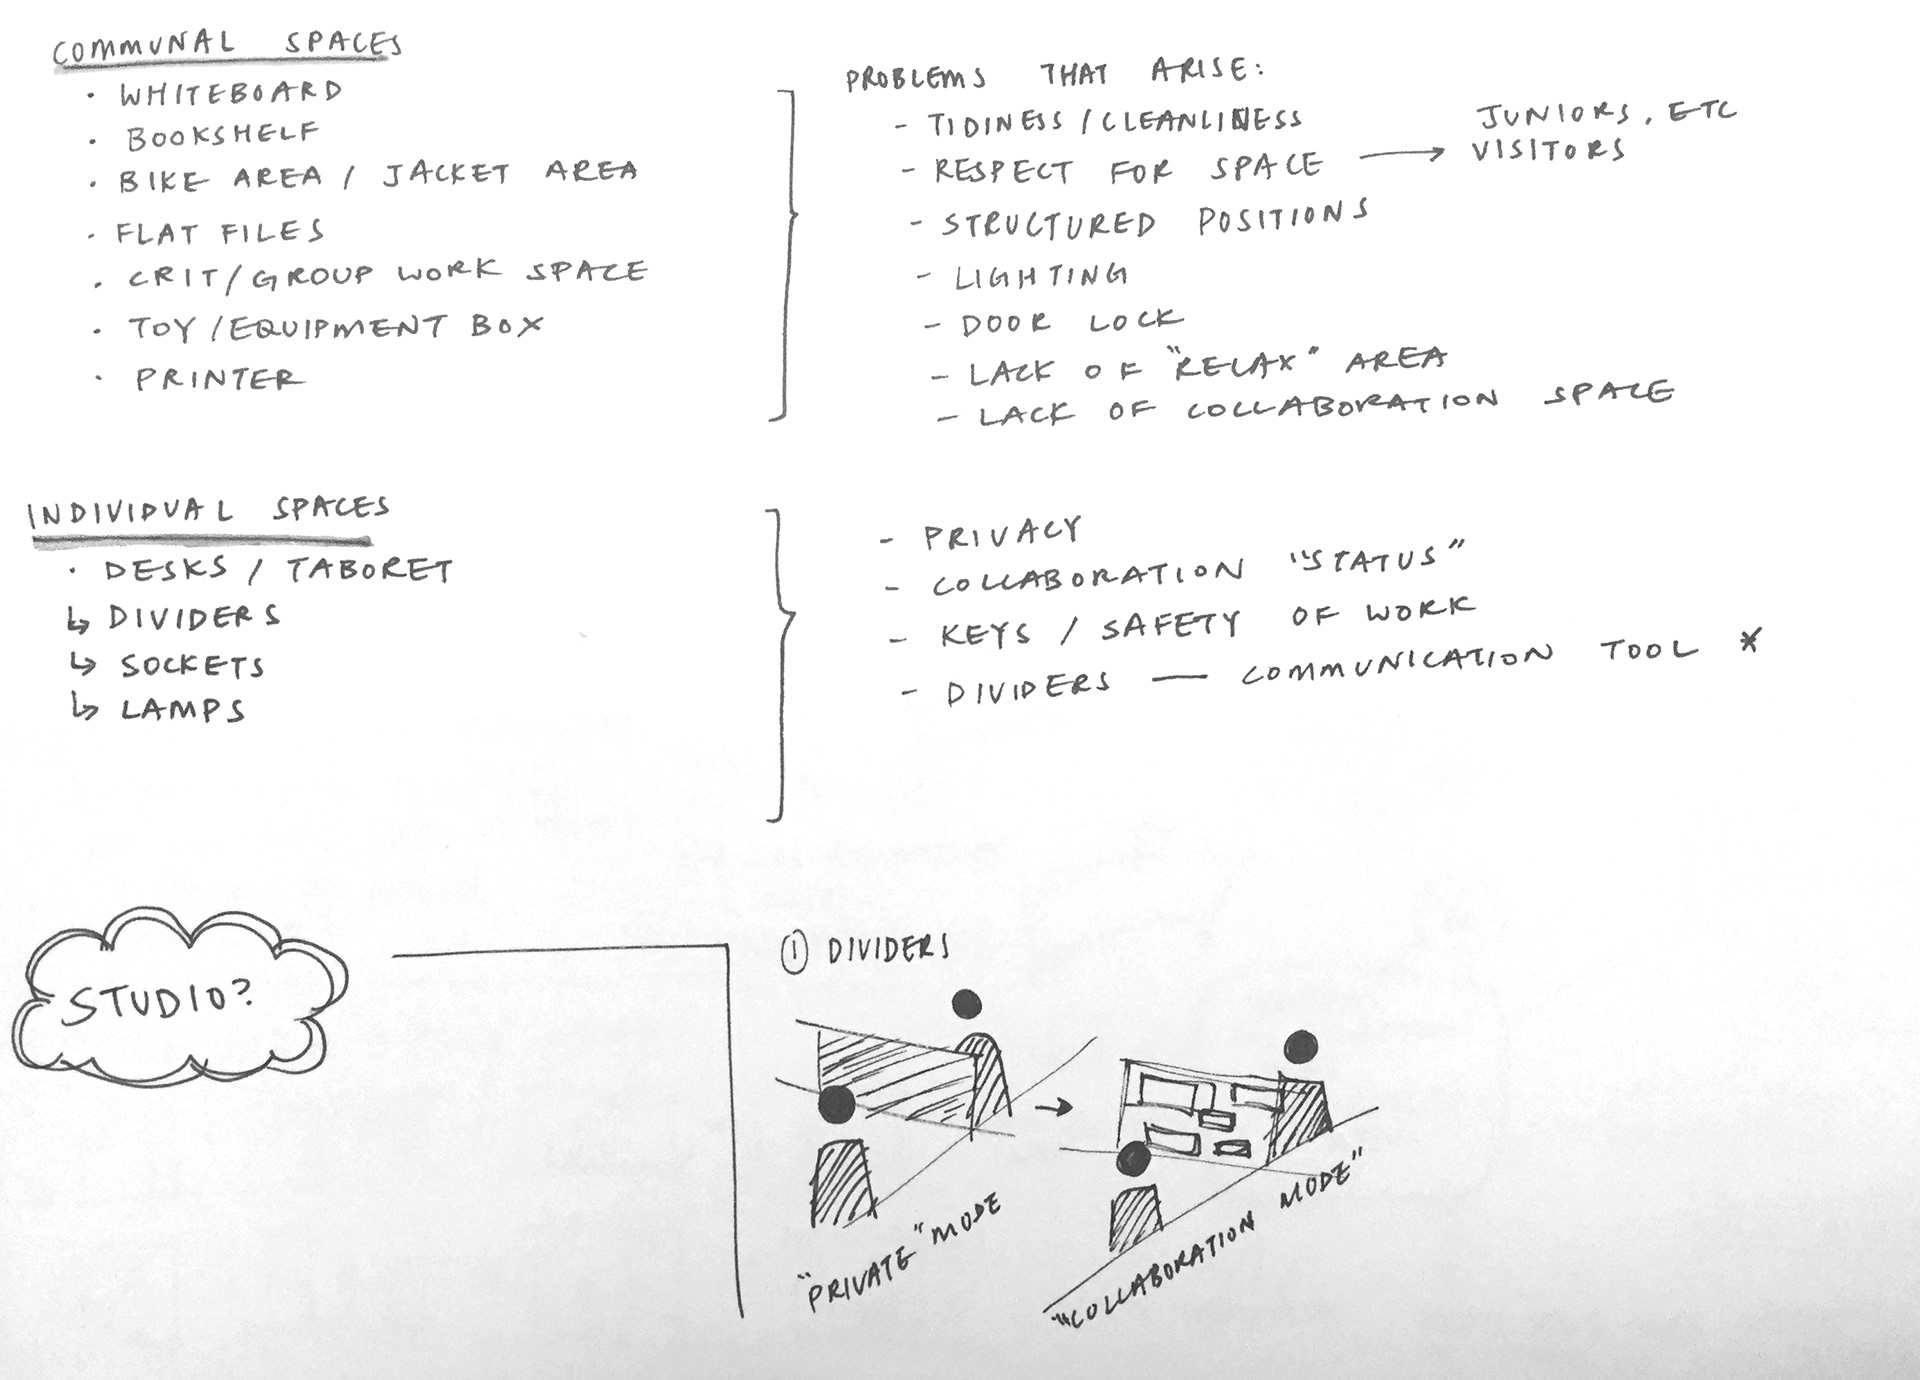 COMMUNAL SPACES
· WHITEBOARD
· BOOKSHELF
· BIKE AREA / JACKET AREA
· FLAT FILES
· CRIT/GROUP WORK SPACE
· TOY/EQUIPMENT BOX
· PRINTER
PROBLEMS THAT ARISE:
- TIDINESS/CLEANLINESS
- RESPECT FOR SPACE → JUNIORS, ETC
VISITORS
- STRUCTURED POSITIONS
- LIGHTING
- DOOR LOCK
- LACK OF "RELAX" AREA
- LACK OF COLLABORATION SPACE
INDIVIDUAL SPACES
· DESKS / TABORET
↳ DIVIDERS
↳ SOCKETS
↳ LAMPS
- PRIVACY
- COLLABORATION "STATUS"
- KEYS / SAFETY OF WORK
- DIVIDERS — COMMUNICATION TOOL *
STUDIO?
① DIVIDERS
"PRIVATE" MODE
"COLLABORATION MODE"